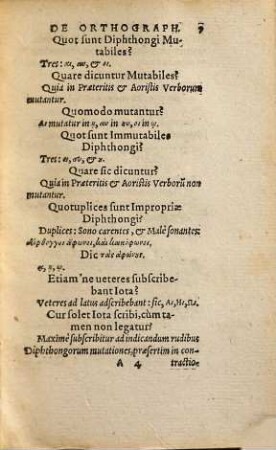 DE ORTHOGRAPH. 7
Quot sunt Diphthongi Mu-
tabiles?
Tres: αι, αυ, & οι.
Quare dicuntur Mutabiles?
Quia in Præteritis & Aoristis Verborum
mutantur.
Quomodo mutantur?
Αι mutatur in ῃ, αυ in ηυ, οι in ῳ.
Quot sunt Immutabiles
Diphthongi?
Tres: ει, ευ, & ου.
Quare sic dicuntur?
Quia in Præteritis & Aoristis Verborū non
mutantur.
Quotuplices sunt Impropriæ
Diphthongi?
Duplices: Sono carentes, & Malè sonantes:
δίφθογγοι ἄφωνοι, καὶ κακόφωνοι.
Dic τὰς ἀφώνους.
ᾳ, ῃ, ῳ.
Etiam'ne veteres subscribe-
bant Iota?
Veteres ad latus adscribebant: sic, Αι, Ηι, Ωι.
Cur solet Iota scribi, cùm ta-
men non legatur?
Maximè subscribitur ad indicandum rudibus
Diphthongorum mutationes, præsertim in con-
A 4 tractio-